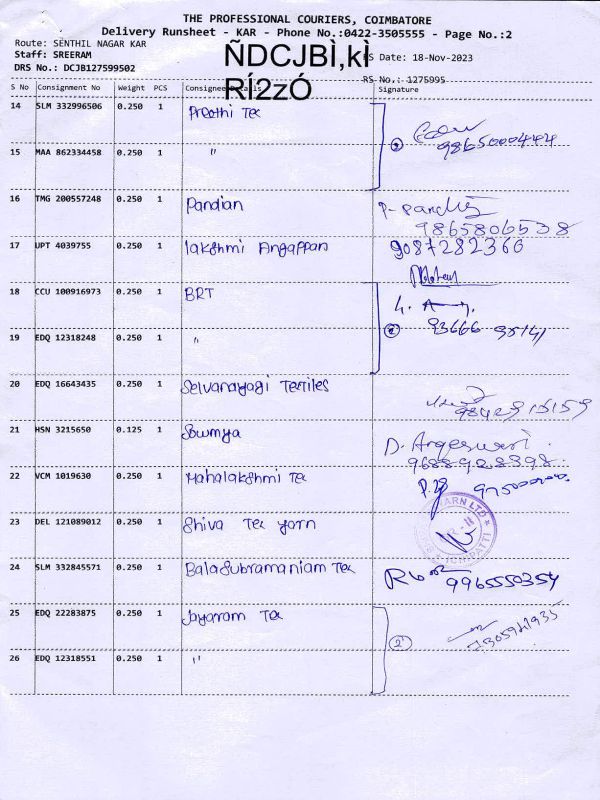 THE PROFESSIONAL COURIERS, COIMBATORE
Delivery Runsheet - KAR - Phone No.:0422-3505555 - Page No.:2
Route: SENTHIL NAGAR KAR
Staff: SREERAM
DRS No.: DCJB127599502
ÑDCJBÌ,kÌ
RÍ2zÓ
S Date: 18-Nov-2023
RS No.: 1275995
S No Consignment No Weight PCS Consignee Details Signature
14 SLM 332996506 0.250 1 Preethi Tex
98650004444
15 MAA 862334458 0.250 1 "
16 TMG 200557248 0.250 1 Pandian P-Pandi
9865806538
17 UPT 4039755 0.250 1 lakshmi Angappan 9087282366
18 CCU 100916973 0.250 1 BRT
93666 95141
19 EDQ 12318248 0.250 1 "
20 EDQ 16643435 0.250 1 Selvanayagi Textiles
9842915159
21 HSN 3215650 0.125 1 Sowmya D.
9688928398
22 VCM 1019630 0.250 1 Mahalakshmi Tex
23 DEL 121089012 0.250 1 Shiva Tex yarn
24 SLM 332845571 0.250 1 Balasubramaniam Tex 9965550354
25 EDQ 22283875 0.250 1 Jayaram Tex
7305941935
2
26 EDQ 12318551 0.250 1 "